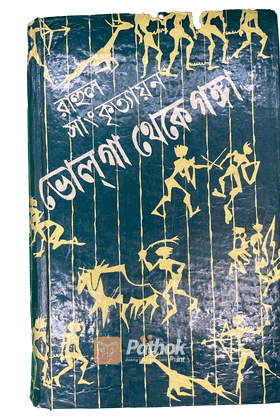 রাহুল
সাংকৃত্যায়ন
ভোল্‌গা থেকে গঙ্গা
Pathok